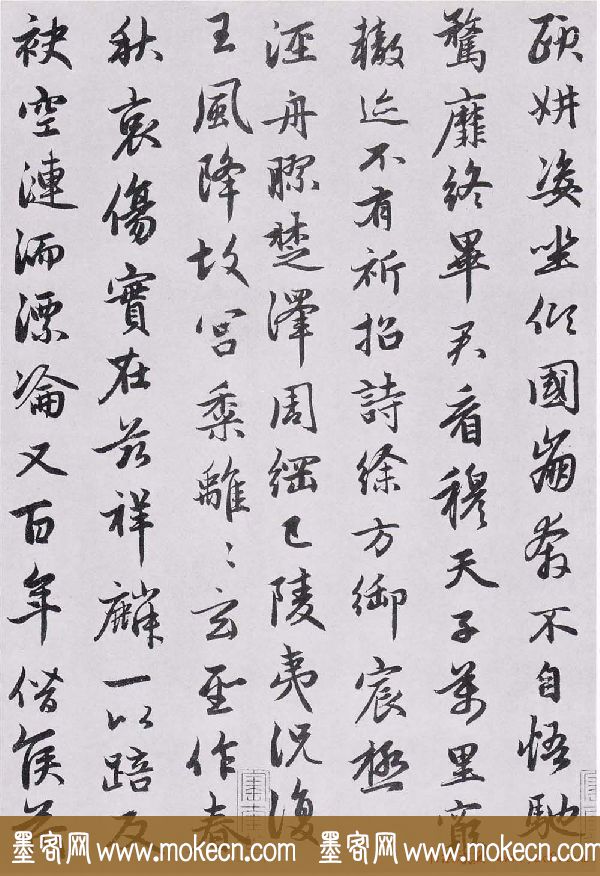 頤妍姿坐傾國崩奔不自悟馳
騖靡終畢君看穆天子萬里窮
轍迹不有祈招詩徐方御宸極
涇舟膠楚澤周綱已陵夷況復
王風降故宮黍離々玄聖作春
秋哀傷實在茲祥麟一以踣反
袂空漣洏漂淪又百年僭侯
墨客网 www.mokecn.com 墨客网 www.mokecn.com